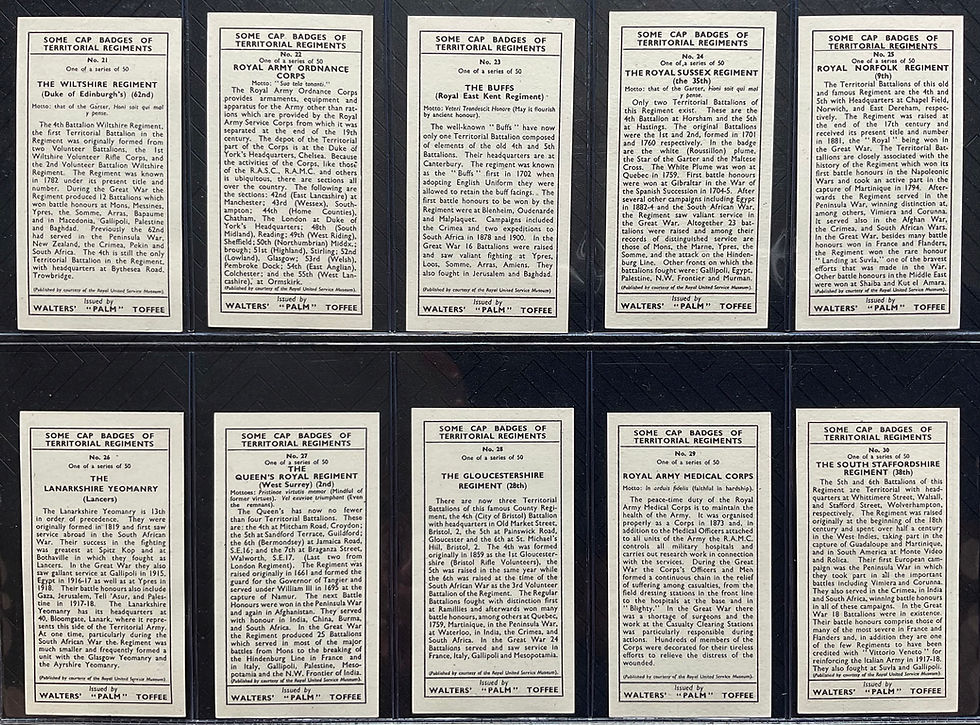 SOME CAP BADGES OF
TERRITORIAL REGIMENTS
No. 21
One of a series of 50
THE WILTSHIRE REGIMENT
(Duke of Edinburgh's) (62nd)
Motto: that of the Garter, Honi soit qui mal
y pense.
The 4th Battalion Wiltshire Regiment,
the first Territorial Battalion in the
Regiment was originally formed from
two Volunteer Battalions, the 1st
Wiltshire Volunteer Rifle Corps, and
the 2nd Volunteer Battalion Wiltshire
Regiment. The Regiment was known
in 1782 under its present title and
number. During the Great War the
Regiment produced 12 Battalions which
won battle honours at Mons, Messines,
Ypres, the Somme, Arras, Bapaume
and in Macedonia, Gallipoli, Palestine
and Baghdad. Previously the 62nd
had served in the Peninsula War,
New Zealand, the Crimea, Pekin and
South Africa. The 4th is still the only
Territorial Battalion in the Regiment,
with headquarters at Bythesea Road,
Trowbridge.
(Published by courtesy of the Royal United Service Museum).
Issued by
WALTERS' "PALM" TOFFEE
SOME CAP BADGES OF
TERRITORIAL REGIMENTS
No. 22
One of a series of 50
ROYAL ARMY ORDNANCE
CORPS
Motto: "Sua tela tonanti."
The Royal Army Ordnance Corps
provides armaments, equipment and
apparatus for the Army other than rat-
ions which are provided by the Royal
Army Service Corps from which it was
separated at the end of the 19th
century. The depot of the Territorial
part of the Corps is at the Duke of
York's Headquarters, Chelsea. Because
the activities of the Corps, like those
of the R.A.S.C., R.A.M.C. and others
is ubiquitous, there are sections all
over the country. The following are
the sections: 42nd (East Lancashire) at
Manchester; 43rd (Wessex), South-
ampton; 44th (Home Counties),
Chatham, The London at Duke of
York's Headquarters; 48th (South
Midland), Reading; 49th (West Riding),
Sheffield; 50th (Northumbrian) Middx.;
brough; 51st (Highland), Stirling; 52nd
(Lowland), Glasgow; 53rd (Welsh),
Pembroke Dock; 54th (East Anglian),
Colchester; and the 55th (West Lan-
cashire), at Ormskirk.
(Published by courtesy of the Royal United Service Museum).
Issued by
WALTERS' "PALM" TOFFEE
SOME CAP BADGES OF
TERRITORIAL REGIMENTS
No. 23
One of a series of 50
THE BUFFS
(Royal East Kent Regiment)
Motto: Veteri Frondescit Honore (May it flourish
by ancient honour).
The well-known "Buffs" have now
only one Territorial Battalion composed
of elements of the old 4th and 5th
Battalions. Their headquarters are at
Canterbury. The regiment was known
as the "Buffs" first in 1702 when
adopting English Uniform they were
allowed to retain the buff facings. The
first battle honours to be won by the
Regiment were at Blenheim, Oudenarde
and Malplaquet. Campaigns included
the Crimea and two expeditions to
South Africa in 1878 and 1900. In the
Great War 16 Battalions were raised
and saw valiant fighting at Ypres,
Loos, Somme, Arras, Amiens. They
also fought in Jerusalem and Baghdad.
(Published by courtesy of the Royal United Service Museum).
Issued by
WALTERS' "PALM" TOFFEE
SOME CAP BADGES OF
TERRITORIAL REGIMENTS
No. 24
One of a series of 50
THE ROYAL SUSSEX REGIMENT
(the 35th)
Motto: that of the Garter, Honi soit qui mal
y pense.
Only two Territorial Battalions of
this Regiment exist. These are the
4th Battalion at Horsham and the 5th
at Hastings. The original Battalions
were the 1st and 2nd, formed in 1701
and 1760 respectively. In the badge
are the white (Roussillon) plume, the
Star of the Garter and the Maltese
Cross. The White Plume was won at
Quebec in 1759. First battle honours
were won at Gibraltar in the War of
the Spanish Succession in 1704-5. After
several other campaigns including Egypt
in 1882-4 and the South African War,
the Regiment saw valiant service in
the Great War. Altogether 23 bat-
talions were raised and among their
records of distinguished service are
those of Mons, the Marne, Ypres, the
Somme, and the attack on the Hinden-
burg Line. Other fronts on which the
battalions fought were: Gallipoli, Egypt,
Palestine, N.W. Frontier and Murman.
(Published by courtesy of the Royal United Service Museum).
Issued by
WALTERS' "PALM" TOFFEE
SOME CAP BADGES OF
TERRITORIAL REGIMENTS
No. 25
One of a series of 50
ROYAL NORFOLK REGIMENT
(9th)
The Territorial Battalions of this old
and famous Regiment are the 4th and
5th with Headquarters at Chapel Field,
Norwich, and East Dereham, respec-
tively. The Regiment was raised at
the end of the 17th century and
received its present title and number
in 1881, the "Royal" being won in
the Great War. The Territorial Bat-
tallions are closely associated with the
history of the Regiment which won its
first battle honours in the Napoleonic
Wars and took an active part in the
capture of Martinique in 1794. After-
wards the Regiment served in the
Peninsula War, winning distinction at,
among others, Vimiera and Corunna.
It served also in the Afghan War,
the Crimea, and South African Wars.
In the Great War, besides many battle
honours won in France and Flanders,
the Regiment won the rare honour
"Landing at Suvla," one of the bravest
efforts that was made in the War.
Other battle honours in the Middle East
were won at Shaiba and Kut el Amara.
(Published by courtesy of the Royal United Service Museum).
Issued by
WALTERS' "PALM" TOFFEE
SOME CAP BADGES OF
TERRITORIAL REGIMENTS
No. 26
One of a series of 50
THE
LANARKSHIRE YEOMANRY
(Lancers)
The Lanarkshire Yeomanry is 13th
in order of precedence. They were
originally formed in 1819 and first saw
service abroad in the South African
War. Their success in the fighting
was greatest at Spitz Kop and at
Bothaville in which they fought as
Lancers. In the Great War they also
saw gallant service at Gallipoli in 1915,
Egypt in 1916-17 as well as at Ypres in
1918. Their battle honours also include
Gaza, Jerusalem, Tell 'Asur, and Pales-
tine in 1917-18. The Lanarkshire
Yeomanry has its headquarters at
40, Bloomgate, Lanark, where it repre-
sents this side of the Territorial Army.
At one time, particularly during the
South African War the Regiment was
much smaller and frequently formed a
unit with the Glasgow Yeomanry and
the Ayrshire Yeomanry.
(Published by courtesy of the Royal United Service Museum).
Issued by
WALTERS' "PALM" TOFFEE
SOME CAP BADGES OF
TERRITORIAL REGIMENTS
No. 27
One of a series of 50
THE
QUEEN'S ROYAL REGIMENT
(West Surrey) (2nd)
Mottoes: Pristinae virtutis memor (Mindful of
former virtues). Vel exuviae triumphant (Even
the remnant).
The Queen's has now no fewer
than four Territorial Battalions. These
are: the 4th at Mitcham Road, Croydon;
the 5th at Sandford Terrace, Guildford;
the 6th (Bermondsey) at Jamaica Road,
S.E.16; and the 7th at Braganza Street,
Walworth, S.E.17. (Last two from
London Regiment). The Regiment was
raised originally in 1661 and formed the
guard for the Governor of Tangier and
served under William III in 1695 at the
capture of Namur. The next Battle
Honours were won in the Peninsula War
and again in Afghanistan. They served
with honour in India, China, Burma,
and South Africa. In the Great War
the Regiment produced 25 Battalions
which served in most of the major
battles from Mons to the breaking of
the Hindenburg Line in France and
in Italy, Gallipoli, Palestine, Meso-
potamia and the N.W. Frontier of India.
(Published by courtesy of the Royal United Service Museum).
Issued by
WALTERS' "PALM" TOFFEE
SOME CAP BADGES OF
TERRITORIAL REGIMENTS
No. 28
One of a series of 50
THE GLOUCESTERSHIRE
REGIMENT (28th)
There are now three Territorial
Battalions of this famous County Regi-
ment, the 4th (City of Bristol) Battalion
with headquarters in Old Market Street,
Bristol, 2, the 5th at Painswick Road,
Gloucester and the 6th at St. Michael's
Hill, Bristol, 2. The 4th was formed
originally in 1859 as the 1st Gloucester-
shire (Bristol Rifle Volunteers), the
5th was raised in the same year while
the 6th was raised at the time of the
South African War as the 3rd Volunteer
Battalion of the Regiment. The Regular
Battalions fought with distinction first
at Ramillies and afterwards won many
battle honours, among others at Quebec,
1759, Martinique, in the Peninsula War,
at Waterloo, in India, the Crimea, and
South Africa. In the Great War 24
Battalions served and saw service in
France, Italy, Gallipoli and Mesopotamia.
(Published by courtesy of the Royal United Service Museum).
Issued by
WALTERS' "PALM" TOFFEE
SOME CAP BADGES OF
TERRITORIAL REGIMENTS
No. 29
One of a series of 50
ROYAL ARMY MEDICAL CORPS
Motto: In arduis fidelis (faithful in hardship).
The peace-time duty of the Royal
Army Medical Corps is to maintain the
health of the Army. It was organised
properly as a Corps in 1873 and, in
addition to the Medical Officers attached
to all units of the Army the R.A.M.C.
controls all military hospitals and
carries out research work in connection
with the services. During the Great
War the Corps's Officers and Men
formed a continuous chain in the relief
of suffering among casualties, from the
field dressing stations in the front line
to the hospitals at the base and in
"Blighty." In the Great War there
was a shortage of surgeons and the
work at the Casualty Clearing Stations
was particularly responsible during
actions. Hundreds of members of the
Corps were decorated for their tireless
efforts to relieve the distress of the
wounded.
(Published by courtesy of the Royal United Service Museum).
Issued by
WALTERS' "PALM" TOFFEE
SOME CAP BADGES OF
TERRITORIAL REGIMENTS
No. 30
One of a series of 50
THE SOUTH STAFFORDSHIRE
REGIMENT (38th)
The 5th and 6th Battalions of this
Regiment are Territorial with head-
quarters at Whittimere Street, Walsall,
and Stafford Street, Wolverhampton,
respectively. The Regiment was raised
originally at the beginning of the 18th
century and spent over half a century
in the West Indies, taking part in the
capture of Guadaloupe and Martinique,
and in South America at Monte Video
and Rolica. Their first European cam-
paign was the Peninsula War in which
they took part in all the important
battles including Vimiera and Corunna.
They also served in the Crimea, in India
and South Africa, winning battle honours
in all of these campaigns. In the Great
War 18 Battalions were in existence.
Their battle honours comprise those of
many of the most severe in France and
Flanders and, in addition they are one
of the few Regiments to have been
credited with "Vittorio Veneto" for
reinforcing the Italian Army in 1917-18.
They also fought at Suvla and Gallipoli.
(Published by courtesy of the Royal United Service Museum).
Issued by
WALTERS' "PALM" TOFFEE